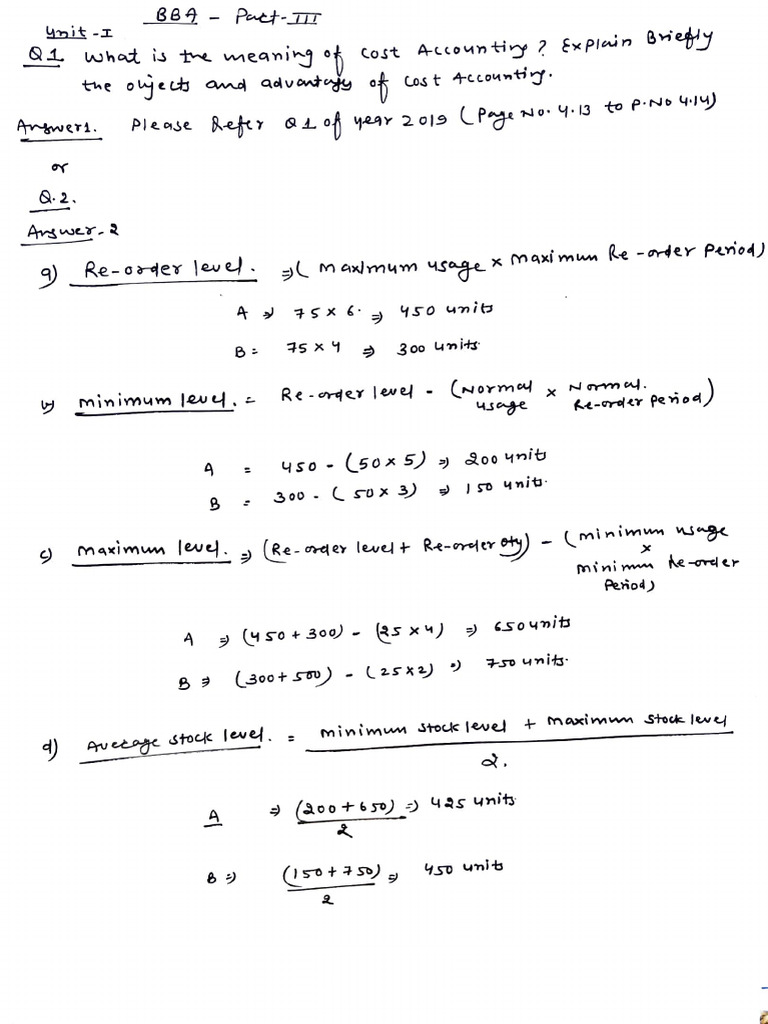 BBA - Part-III
Unit-I
Q1. What is the meaning of Cost Accounting? Explain Briefly
the objects and advantages of Cost Accounting.
Answer1. Please Refer Q1 of year 2019 (Page No. 4.13 to P.No 4.14)
or
Q.2.
Answer-2
a) Re-order level. ⇒ (Maximum usage × Maximum Re-order Period)
A ⇒ 75 × 6 ⇒ 450 units
B = 75 × 4 ⇒ 300 units
b) Minimum level. = Re-order level - (Normal usage × Normal Re-order Period)
A = 450 - (50 × 5) ⇒ 200 units
B = 300 - (50 × 3) ⇒ 150 units.
c) Maximum level. ⇒ (Re-order level + Re-order Qty) - (minimum usage × minimum Re-order Period)
A ⇒ (450 + 300) - (25 × 4) ⇒ 650 units
B ⇒ (300 + 500) - (25 × 2) ⇒ 750 units.
d) Average stock level. = minimum stock level + maximum stock level
2.
A ⇒ (200 + 650) ⇒ 425 units
2
B ⇒ (150 + 750) ⇒ 450 units
2